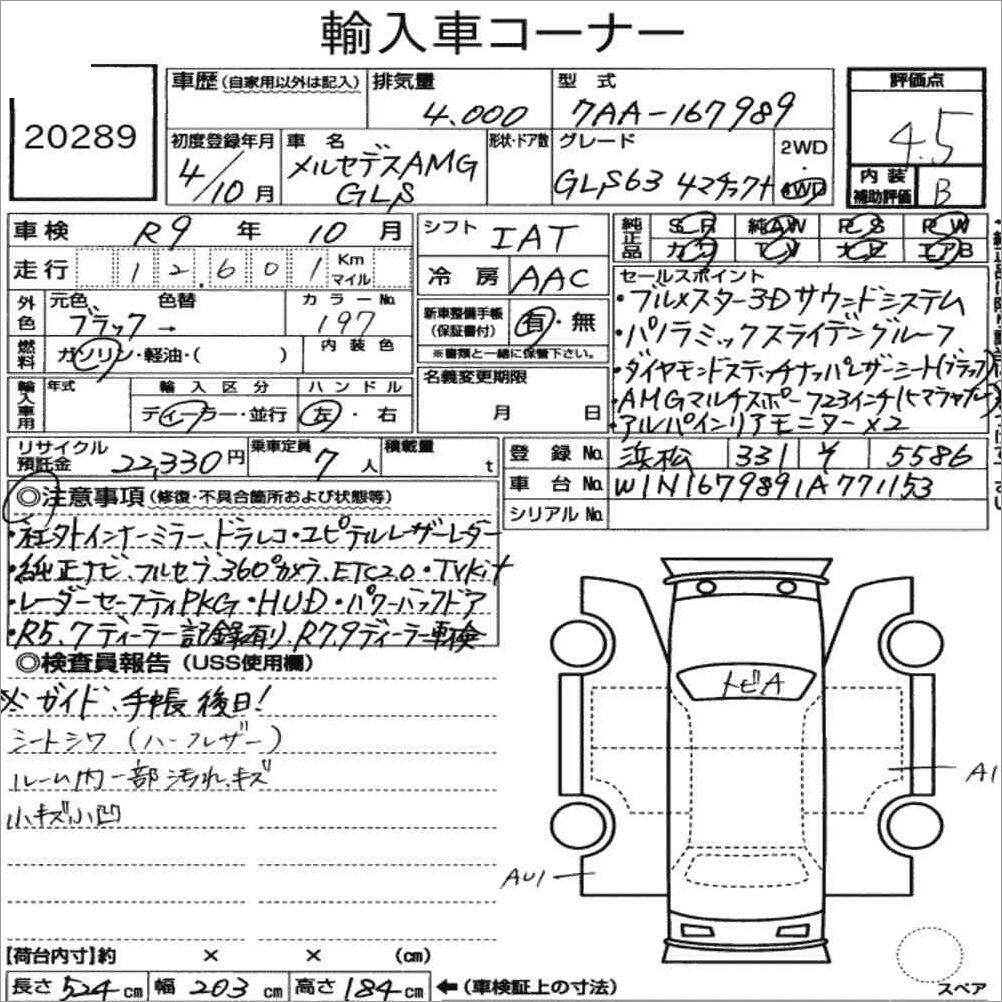 輸入車コーナー
20289
車歴 (自家用以外は記入) 排気量 4.000 型式 7AA-167989
初度登録年月 4/10月 車名 メルセデスAMG GLS 形状・ドア数 グレード GLS63 4マチック+ 2WD・4WD
評価点 4.5
内装補助評価 B
車検 R9年 10月
走行 12.601 Km マイル
シフト IAT
冷房 AAC
純正品 SR 純AW PS PW
カワ TV ナビ エアB
外色 元色 ブラック → 色替 カラーNo. 197
燃料 ガソリン・軽油・( ) 内装色
新車整備手帳 (保証書付) 有・無
※書類と一緒に保管下さい。
輸入車用 年式 輸入区分 ディーラー・並行 ハンドル 左・右
名義変更期限 月 日
セールスポイント
・ブルメスター3Dサウンドシステム
・パノラミックスライディングルーフ
・ダイヤモンドステッチナッパレザーシート(ブラック)
・AMGマルチスポーク23インチ(
・アルパインリアモニター×2
リサイクル預託金 22,330円 乗車定員 7人 積載量 t
登録No. 浜松 331 5586
車台No. W1N1679891A771153
シリアルNo.
◎注意事項 (修復・不具合箇所および状態等)
・社外インナーミラー、ドラレコ・ユピテルレーザーレーダー
・純正ナビ、フルセグ、360°カメラ、ETC2.0・TVkit
・レーダーセーフティPKG・HUD・パワーバックドア
・R5、7ディーラー記録有り、R7.9ディーラー車検
◎検査員報告 (USS使用欄)
※ガイド、手帳後日!
シートシワ (ハーフレザー)
ルーム内一部汚れ、キズ
小キズ小凹
トビA
A1
AU1
【荷台内寸】約 × × (cm)
長さ 524cm 幅 203cm 高さ 184cm ←(車検証上の寸法)
スペア